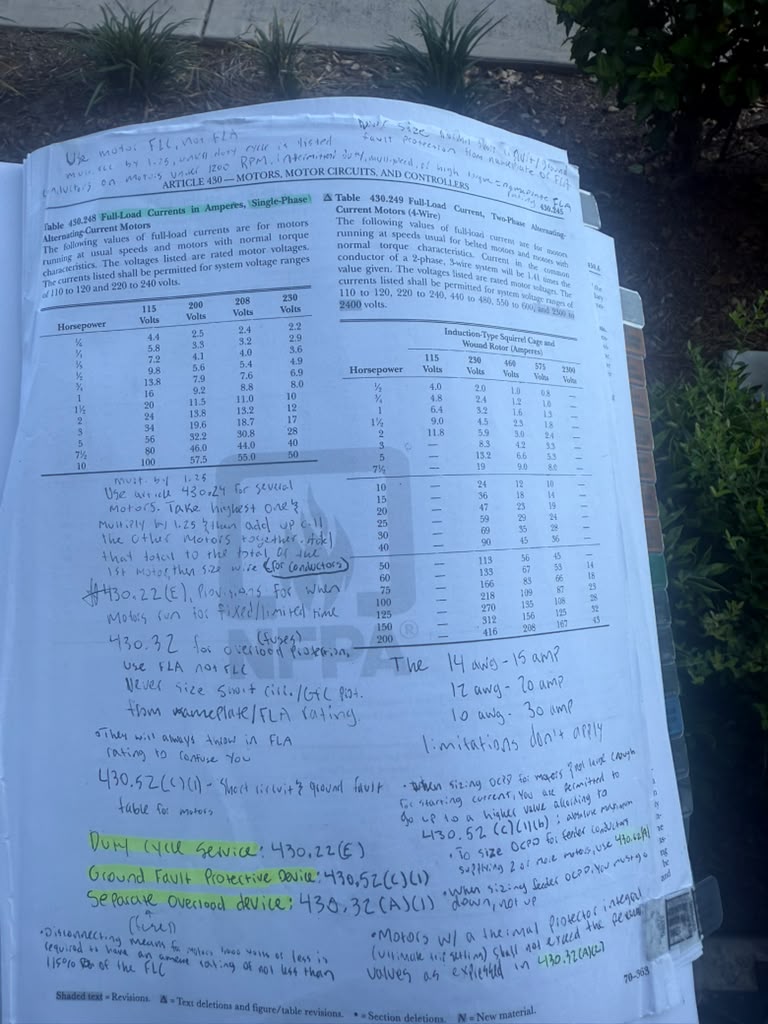 Use motor FLC, not FLA
must calc by 1.25, until duty cycle is listed
conductors on motors under 1200 RPM, intermittent duty, multispeed, or high torque = nameplate FLA
fault protection from nameplate or FLA
ARTICLE 430 — MOTORS, MOTOR CIRCUITS, AND CONTROLLERS
430.249
Table 430.248 Full-Load Currents in Amperes, Single-Phase
Alternating-Current Motors
The following values of full-load currents are for motors
running at usual speeds and motors with normal torque
characteristics. The voltages listed are rated motor voltages.
The currents listed shall be permitted for system voltage ranges
of 110 to 120 and 220 to 240 volts.
Horsepower 115 Volts 200 Volts 208 Volts 230 Volts
⅙ 4.4 2.5 2.4 2.2
¼ 5.8 3.3 3.2 2.9
⅓ 7.2 4.1 4.0 3.6
½ 9.8 5.6 5.4 4.9
¾ 13.8 7.9 7.6 6.9
1 16 9.2 8.8 8.0
1½ 20 11.5 11.0 10
2 24 13.8 13.2 12
3 34 19.6 18.7 17
5 56 32.2 30.8 28
7½ 80 46.0 44.0 40
10 100 57.5 55.0 50
must by 1.25
Use article 430.24 for several
Motors. Take highest one &
multiply by 1.25 & then add up all
the other motors together. Add
that total to the total of the
1st motor, then size wire (for conductors)
430.22(E), Provisions for when
Motors run for fixed/limited time
(fuses)
430.32 for overload protection,
use FLA not FLC
Never size short circ./GFC prot.
from nameplate/FLA rating.
• They will always throw in FLA
rating to confuse you
430.52(C)(1) - Short circuit & ground fault
table for motors
Δ Table 430.249 Full-Load Current, Two-Phase Alternating-
Current Motors (4-Wire)
The following values of full-load current are for motors
running at speeds usual for belted motors and motors with
normal torque characteristics. Current in the common
conductor of a 2-phase, 3-wire system will be 1.41 times the
value given. The voltages listed are rated motor voltages. The
currents listed shall be permitted for system voltage ranges of
110 to 120, 220 to 240, 440 to 480, 550 to 600, and 2300 to
2400 volts.
Induction-Type Squirrel Cage and
Wound Rotor (Amperes)
Horsepower 115 Volts 230 Volts 460 Volts 575 Volts 2300 Volts
½ 4.0 2.0 1.0 0.8 —
¾ 4.8 2.4 1.2 1.0 —
1 6.4 3.2 1.6 1.3 —
1½ 9.0 4.5 2.3 1.8 —
2 11.8 5.9 3.0 2.4 —
3 — 8.3 4.2 3.3 —
5 — 13.2 6.6 5.3 —
7½ — 19 9.0 8.0 —
10 — 24 12 10 —
15 — 36 18 14 —
20 — 47 23 19 —
25 — 59 29 24 —
30 — 69 35 28 —
40 — 90 45 36 —
50 — 113 56 45 —
60 — 133 67 53 14
75 — 166 83 66 18
100 — 218 109 87 23
125 — 270 135 108 28
150 — 312 156 125 32
200 — 416 208 167 43
NFPA®
The 14 awg - 15 amp
12 awg - 20 amp
10 awg - 30 amp
limitations don't apply
• When sizing OCPD for motors & not large enough
for starting current, you are permitted to
go up to a higher value according to
430.52 (C)(1)(b): absolute maximum
• To size OCPD for feeder conductors
supplying 2 or more motors, use 430.62(A)
• When sizing feeder OCPD, you must go
down, not up
Duty Cycle Service: 430.22(E)
Ground Fault Protective Device: 430.52(C)(1)
Separate Overload device: 430.32(A)(1)
(fuses)
• Disconnecting means for motors 1000 volts or less is
required to have an ampere rating of not less than
115% of the FLC
• Motors w/ a thermal protector integral
(ultimate trip setting) shall not exceed the
values as expressed in 430.32(A)(2)
70-363
Shaded text = Revisions. Δ = Text deletions and figure/table revisions. • = Section deletions. N = New material.